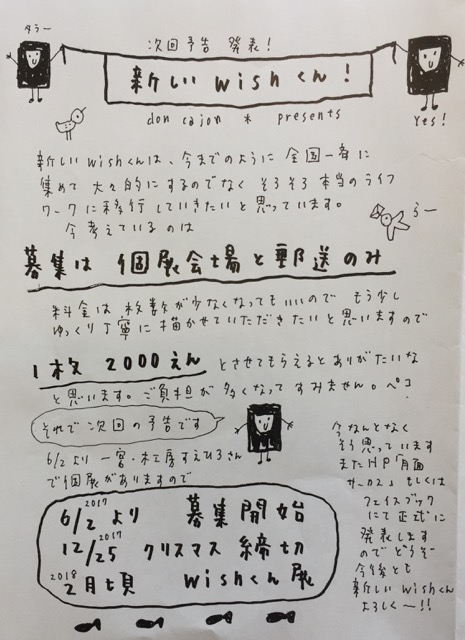 タラー
次回予告 発表!
新しい wishくん!
don cajon * presents
Yes!
新しい wishくんは、今までのように 全国一斉に
集めて 大々的にするのでなく そろそろ 本当のライフ
ワークに移行していきたいと思っています。
今考えているのは
らー
募集は 個展会場と郵送のみ
料金は 枚数が少なくなってもいいので もう少し
ゆっくり丁寧に描かせていただきたいと思いますので
1枚 2000えん とさせてもらえると ありがたいな
と思います。ご負担が多くなって すみません。ペコ
それで 次回の予告です
6/2より 一宮・木工房すえひろさん
で個展がありますので
2017
6/2 より 募集開始
2017
12/25 クリスマス 締切
2018
2月頃 wishくん展
今なんとなく
そう思っています
またHP「月面
サーカス」もしくは
フェイスブック
にて正式に
発表します
のでどうぞ
今後とも
新しい wishくん
よろしく〜!!